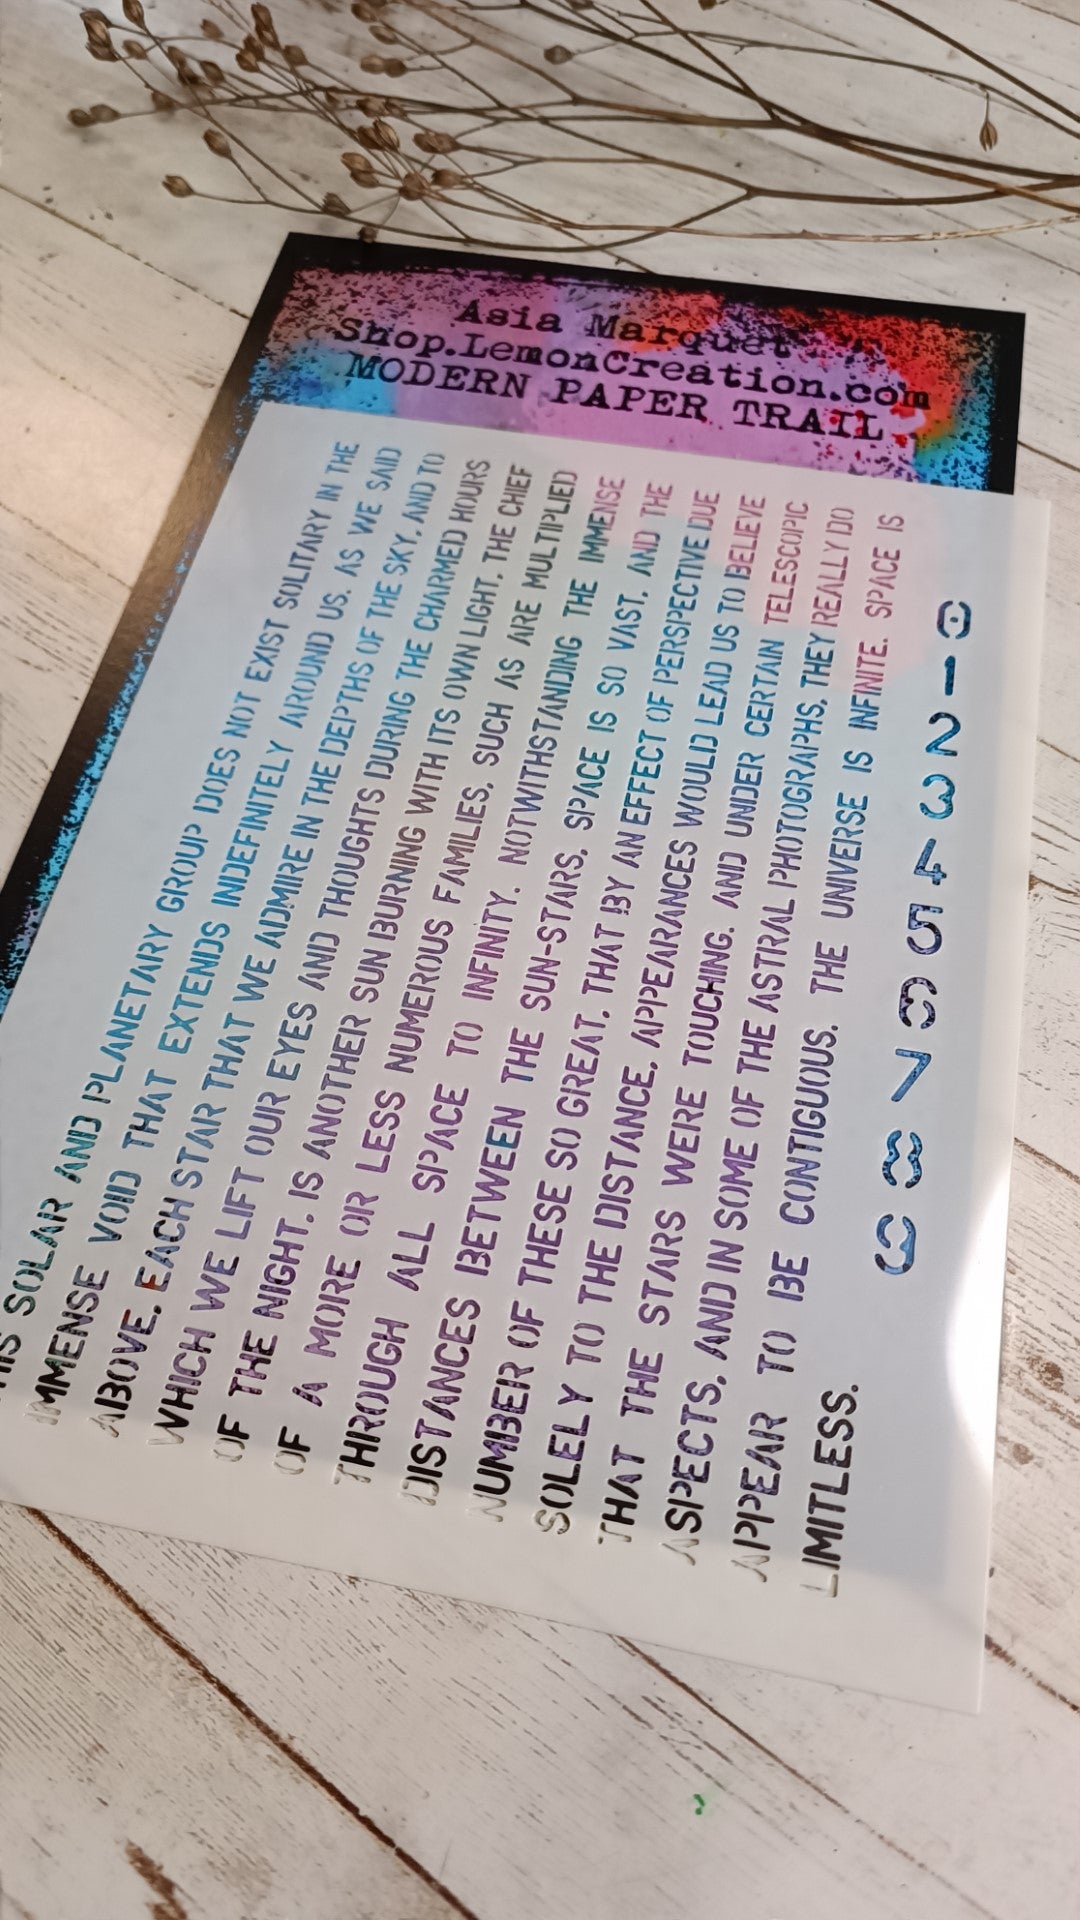 Asia Marquet
Shop.LemonCreation.com
MODERN PAPER TRAIL
SOLAR AND PLANETARY GROUP DOES NOT EXIST SOLITARY IN THE
IMMENSE VOID THAT EXTENDS INDEFINITELY AROUND US. AS WE SAID
ABOVE, EACH STAR THAT WE ADMIRE IN THE DEPTHS OF THE SKY, AND TO
WHICH WE LIFT OUR EYES AND THOUGHTS DURING THE CHARMED HOURS
OF THE NIGHT, IS ANOTHER SUN BURNING WITH ITS OWN LIGHT, THE CHIEF
OF A MORE OR LESS NUMEROUS FAMILIES, SUCH AS ARE MULTIPLIED
THROUGH ALL SPACE TO INFINITY. NOTWITHSTANDING THE IMMENSE
DISTANCES BETWEEN THE SUN-STARS, SPACE IS SO VAST, AND THE
NUMBER OF THESE SO GREAT, THAT BY AN EFFECT OF PERSPECTIVE DUE
SOLELY TO THE DISTANCE, APPEARANCES WOULD LEAD US TO BELIEVE
THAT THE STARS WERE TOUCHING. AND UNDER CERTAIN TELESCOPIC
ASPECTS, AND IN SOME OF THE ASTRAL PHOTOGRAPHS, THEY REALLY DO
APPEAR TO BE CONTIGUOUS. THE UNIVERSE IS INFINITE. SPACE IS
LIMITLESS.
0 1 2 3 4 5 6 7 8 9